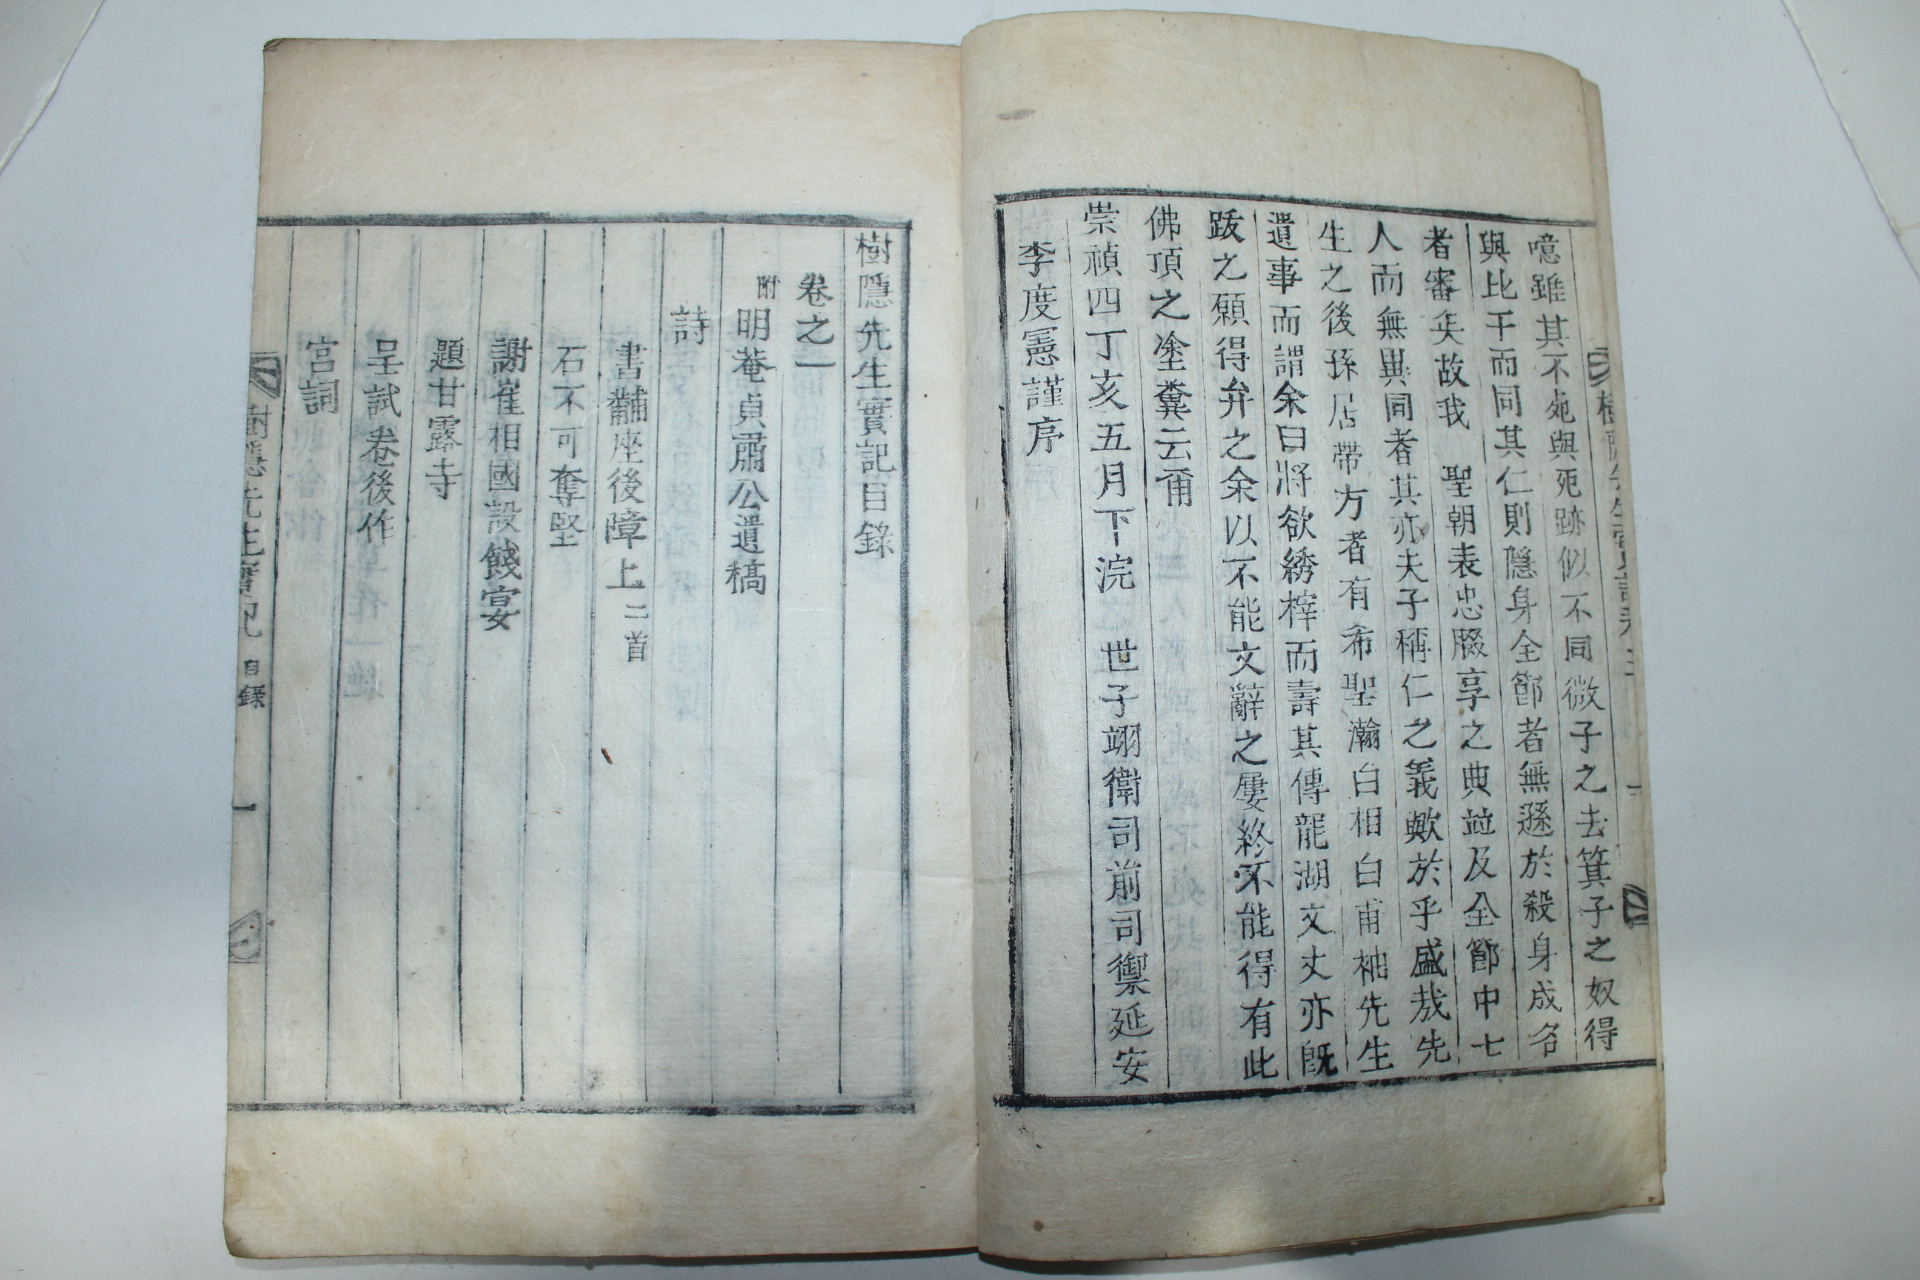 噫雖其不死與死跡似不同微子之去箕子之奴得
與比干而同其仁則隱身全節者無遜於殺身成名
者審矣故我 聖朝表忠腏享之典並及全節中七
人而無異同者其亦夫子稱仁之義歟於乎盛哉先
生之後孫居帶方者有希聖瀚白相白甫袖先生
遺事而謂余曰將欲綉梓而壽其傳龍湖文丈亦旣
跋之願得弁之余以不能文辭之屢終不能得有此
佛頂之塗糞云爾
崇禎四丁亥五月下浣 世子翊衛司前司禦延安
李度憲謹序
樹隱先生實記目錄
卷之一
附明菴貞肅公遺稿
詩
書黼座後障上 二首
石不可奪堅
謝崔相國設餞宴
題甘露寺
呈試卷後作
宮詞
樹隱先生實記 目錄 一